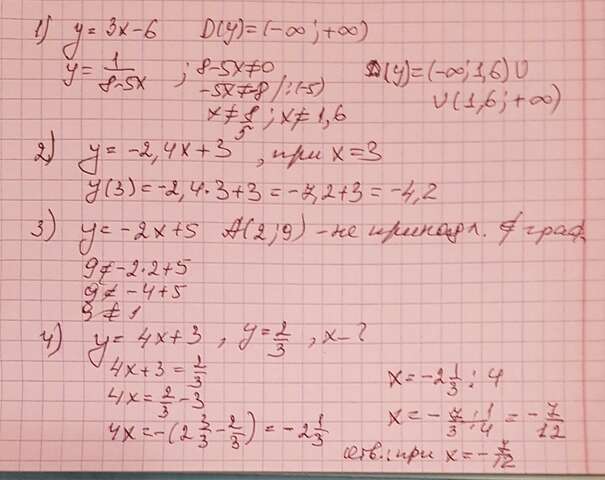 1) y = 3x-6 D(y)=(-∞;+∞)
y = 1/(8-5x) ; 8-5x≠0 D(y)=(-∞;1,6)∪
-5x≠8 /:(-5) ∪(1,6;+∞)
x≠8/5 ; x≠1,6
2) y = -2,4x+3 , при x=3
y(3)=-2,4·3+3=-7,2+3=-4,2
3) y = -2x+5 A(2;9) - не принадл. граф.
9≠-2·2+5
9≠-4+5
9≠1
4) y = 4x+3 , y=2/3 , x-?
4x+3=2/3 x=-2 1/3 : 4
4x=2/3-3 x=-7/3 : 1/4 = -7/12
4x=-(2 3/3 - 2/3) = -2 1/3
отв.: при x=-7/12